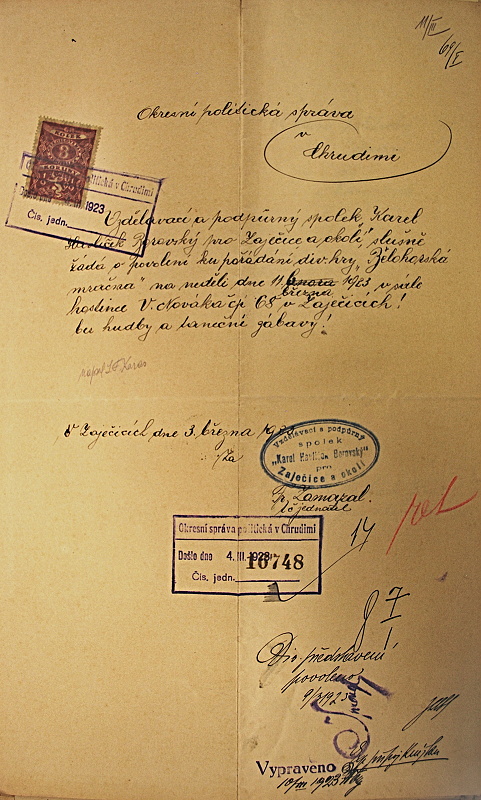 11/III
69/I
Okresní politická správa
v
Chrudimi
KOLEK
3
KORUNY
politická v Chrudimi
1923
Čís. jedn.
Vzdělávací a podpůrný spolek Karel
Havlíček Borovský pro Zaječice a okolí, slušně
žádá o povolení ku pořádání div. hry „Bělohorská
mračna" na neděli dne 11. února 1923 v sále
března
hostince V. Nováka čp 68 v Zaječicích!
bez hudby a taneční zábavy!
V Zaječicích dne 3. března 1923
Za
Vzdělávací a podpůrný
spolek
„Karel Havlíček Borovský"
pro
Zaječice a okolí
Zamazal.
jednatel
14
Okresní správa politická v Chrudimi
Došlo dne 4. III. 1923
10748
Čís. jedn.
Div. představení
povoleno
9/3 1923
Vypraveno
10/III 1923